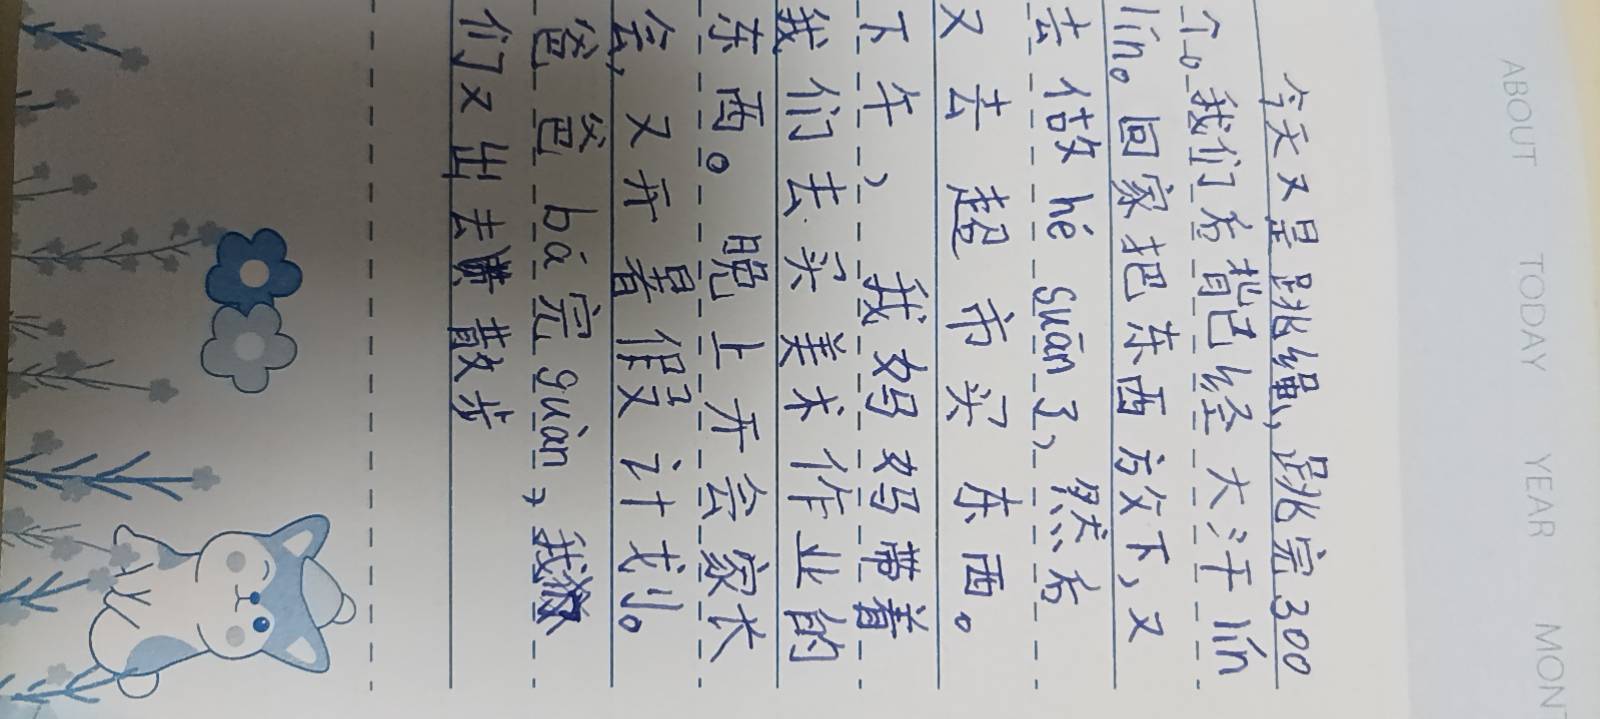 ABOUT TODAY YEAR MON
今天又是跳绳，跳完300
个。我们有背已经大汗lín
lín。回家把东西放下，又
去信故hé suān了，然后
又去超市买东西。
下午，我妈妈带着
我们去买美术作业的
东西。晚上开会家长
会，又开暑假又计划。
爸爸bá完guàn，我
们又出去散步